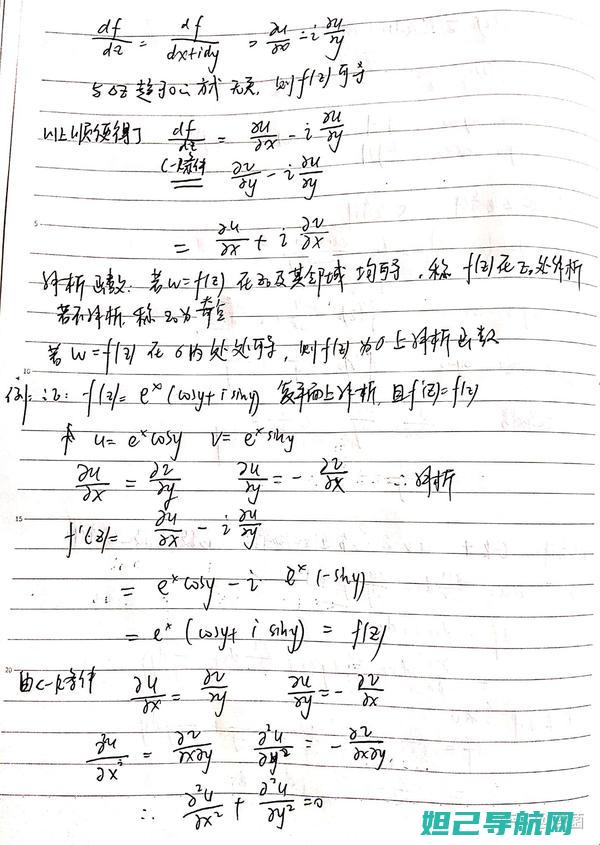 df/dz = df/dx+idy = ∂u/∂x - i ∂u/∂y
与Δz趋于0の方式无关, 则f(z)可导
以上顺便得了 df/dz = ∂u/∂x - i ∂u/∂y
C-R条件 ∂v/∂y - i ∂u/∂y
5
= ∂u/∂x + i ∂v/∂x
解析函数: 若w=f(z) 在z₀及其邻域 均可导, 称 f(z)在z₀处解析
若不解析, 称z₀为奇点
若 w=f(z) 在σ内处处可导, 则f(z)为σ上解析函数
10
例: 证: f(z)= eˣ(cosy+isiny) 复平面上解析, 且f'(z)=f(z)
u= eˣcosy v= eˣsiny
∂u/∂x = ∂v/∂y ∂u/∂y = - ∂v/∂x ∴ 解析
15
f'(z)= ∂u/∂x - i ∂u/∂y
= eˣcosy - i eˣ(-siny)
= eˣ (cosy+ i siny) = f(z)
20
由C-R条件 ∂u/∂x = ∂v/∂y ∂u/∂y = - ∂v/∂x
∂²u/∂x² = ∂v/∂x∂y ∂²u/∂y² = - ∂v/∂x∂y
∴ ∂²u/∂x² + ∂²u/∂y² =0
妲己导航网